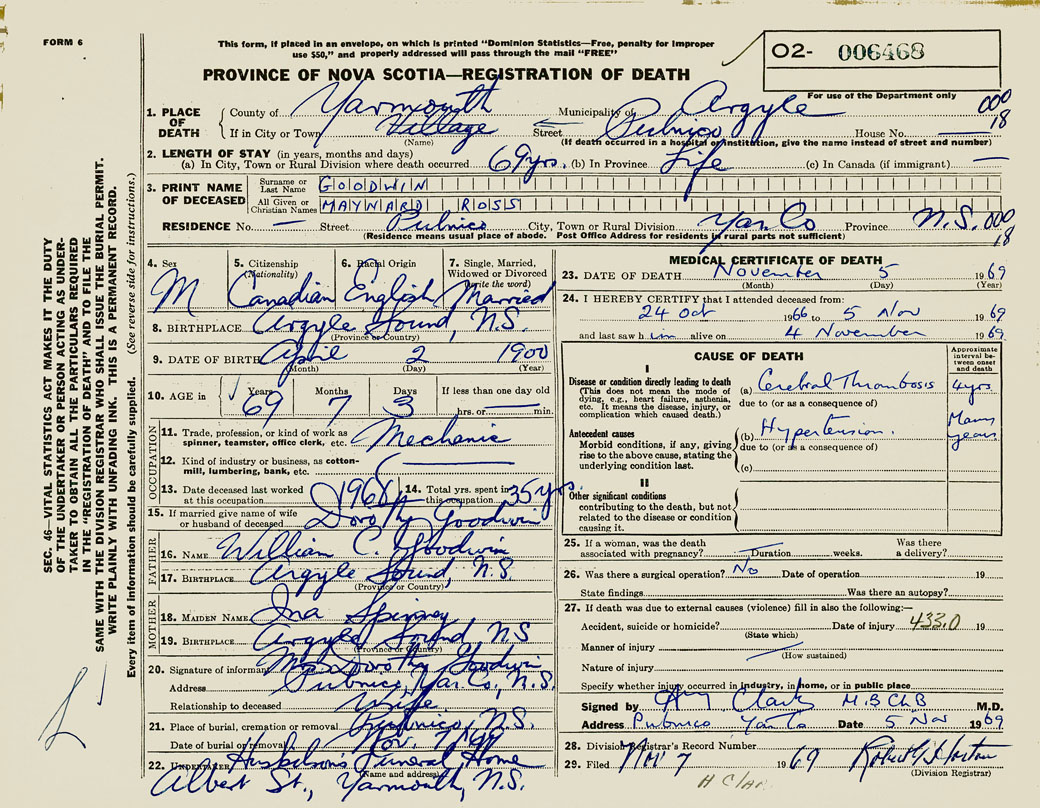 FORM 6
This form, if placed in an envelope, on which is printed "Dominion Statistics—Free, penalty for improper
use $50," and properly addressed will pass through the mail "FREE"
02- 006468
PROVINCE OF NOVA SCOTIA—REGISTRATION OF DEATH
For use of the Department only
000
18
1. PLACE OF DEATH { County of Yarmouth Municipality of Argyle
If in City or Town Village Street Pubnico House No. —
(Name) (If death occurred in a hospital or institution, give the name instead of street and number)
2. LENGTH OF STAY (in years, months and days)
(a) In City, Town or Rural Division where death occurred 69 yrs. (b) In Province Life (c) In Canada (if immigrant) —
3. PRINT NAME OF DECEASED
Surname or Last Name GOODWIN
All Given or Christian Names MAYNARD ROSS
RESIDENCE No. — Street Pubnico City, Town or Rural Division Yar. Co Province N.S. 000
18
(Residence means usual place of abode. Post Office Address for residents in rural parts not sufficient)
SEC. 46—VITAL STATISTICS ACT MAKES IT THE DUTY
OF THE UNDERTAKER OR PERSON ACTING AS UNDER-
TAKER TO OBTAIN ALL THE PARTICULARS REQUIRED
IN THE "REGISTRATION OF DEATH" AND TO FILE THE
SAME WITH THE DIVISION REGISTRAR WHO SHALL ISSUE THE BURIAL PERMIT.
WRITE PLAINLY WITH UNFADING INK. THIS IS A PERMANENT RECORD.
Every item of information should be carefully supplied. (See reverse side for instructions.)
4. Sex M
5. Citizenship (Nationality) Canadian
6. Racial Origin English
7. Single, Married, Widowed or Divorced (write the word) Married
8. BIRTHPLACE Argyle Sound, N.S.
(Province or Country)
9. DATE OF BIRTH April 2 1900
(Month) (Day) (Year)
10. AGE in Years 69 Months 7 Days 3 If less than one day old
hrs. or min.
OCCUPATION
11. Trade, profession, or kind of work as spinner, teamster, office clerk, etc. Mechanic
12. Kind of industry or business, as cotton-mill, lumbering, bank, etc.
13. Date deceased last worked at this occupation
14. Total yrs. spent in this occupation 35 yrs.
15. If married give name of wife or husband of deceased Dorothy Goodwin
FATHER
16. NAME William C. Goodwin
17. BIRTHPLACE Argyle Sound, N.S.
(Province or Country)
MOTHER
18. MAIDEN NAME Ina Spinney
19. BIRTHPLACE Argyle Sound NS
(Province or Country)
20. Signature of informant Mrs Dorothy Goodwin
Address Pubnico, Yar. Co, N.S.
Relationship to deceased Wife
21. Place of burial, cremation or removal Pubnico, N.S.
Date of burial or removal Nov. 7
22. UNDERTAKER Funeral Home
(Name and address)
Albert St., Yarmouth, N.S.
MEDICAL CERTIFICATE OF DEATH
23. DATE OF DEATH November 5 1969
(Month) (Day) (Year)
24. I HEREBY CERTIFY that I attended deceased from:
24 Oct 1966 to 5 Nov 1969
and last saw him alive on 4 November 1969
CAUSE OF DEATH
Approximate interval between onset and death
I
Disease or condition directly leading to death
(This does not mean the mode of dying, e.g., heart failure, asthenia, etc. It means the disease, injury, or complication which caused death.)
(a) Cerebral Thrombosis 4 yrs.
due to (or as a consequence of)
Antecedent causes
Morbid conditions, if any, giving rise to the above cause, stating the underlying condition last.
(b) Hypertension. Many years
due to (or as a consequence of)
(c)
II
Other significant conditions
contributing to the death, but not related to the disease or condition causing it.
25. If a woman, was the death associated with pregnancy? Duration weeks. Was there a delivery?
26. Was there a surgical operation? No Date of operation 19
State findings Was there an autopsy?
27. If death was due to external causes (violence) fill in also the following:—
Accident, suicide or homicide? Date of injury 433.0 19
(State which)
Manner of injury
(How sustained)
Nature of injury
Specify whether injury occurred in industry, in home, or in public place
Signed by Clark M.B Ch.B M.D.
Address Pubnico Yar Co Date 5 Nov 1969
28. Division Registrar's Record Number
29. Filed Nov 7 1969
(Division Registrar)